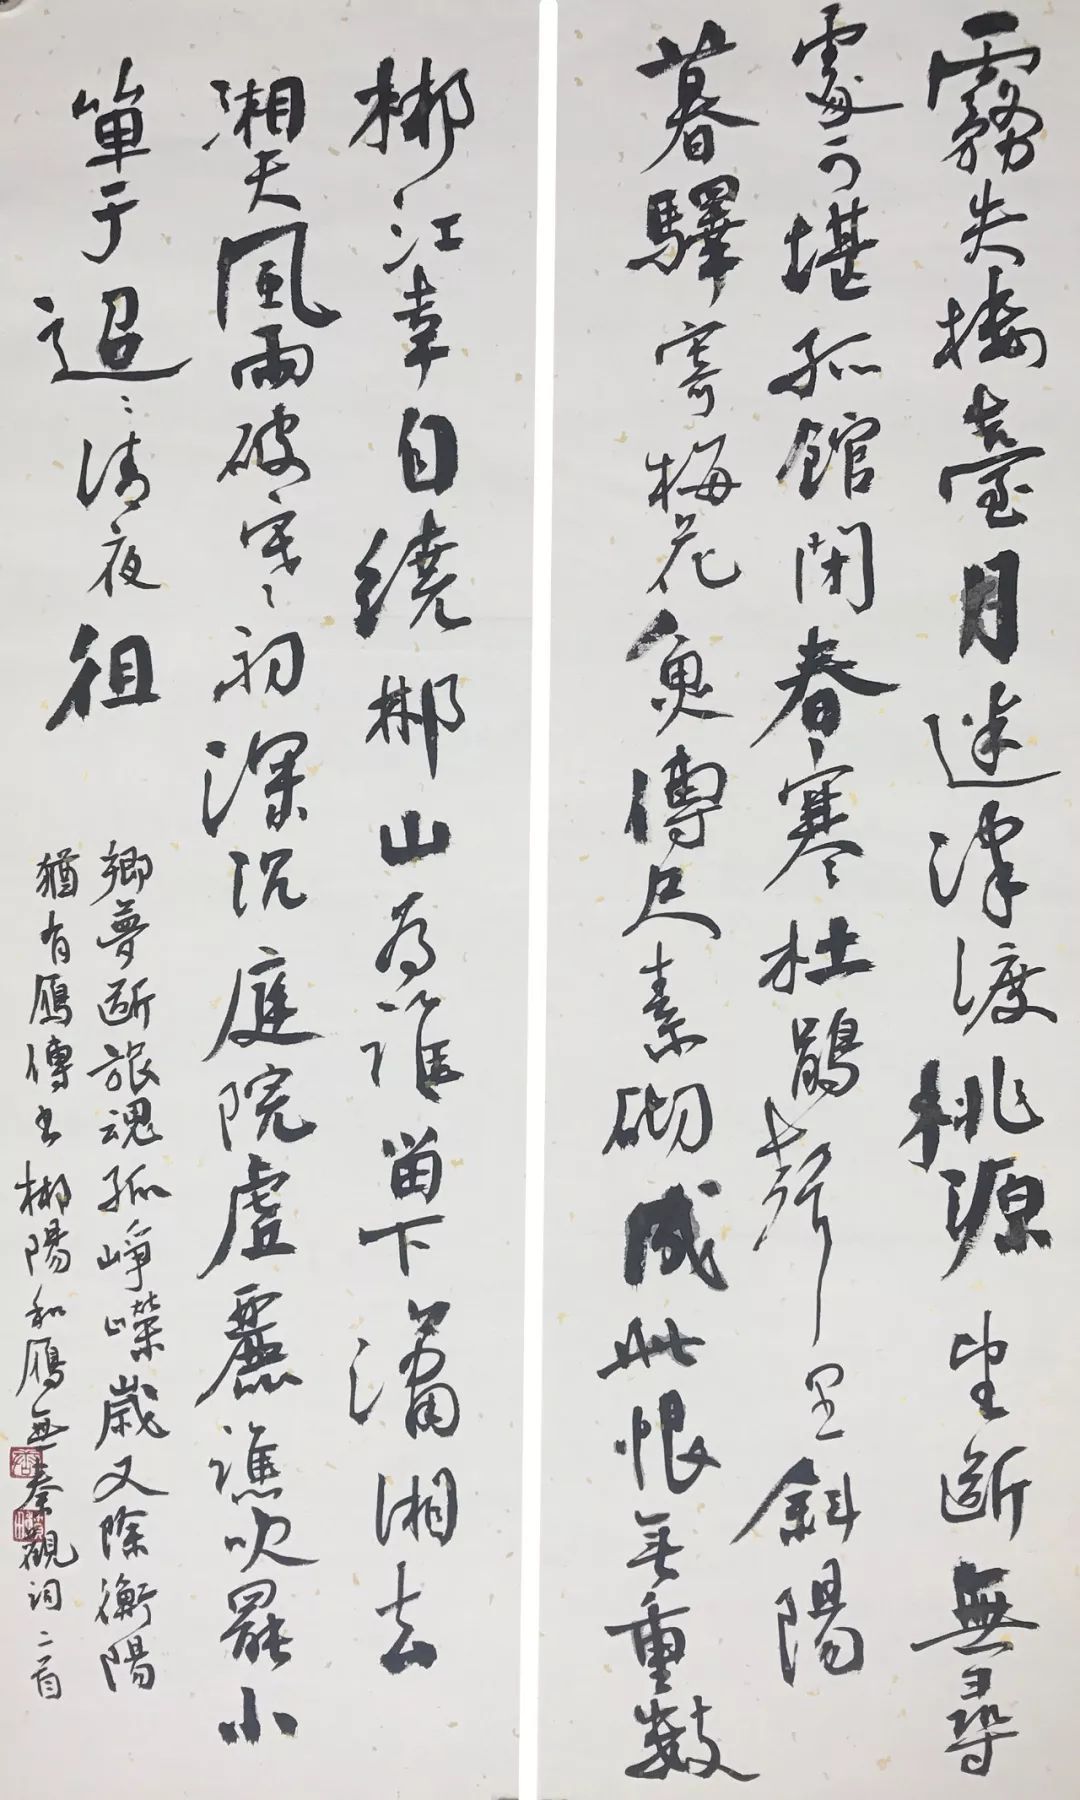 霧失樓臺月迷津渡桃源望斷無尋
處可堪孤館閉春寒杜鵑聲里斜陽
暮驛寄梅花魚傳尺素砌成此恨無重數
郴江幸自繞郴山為誰留下瀟湘去
湘天風雨破寒初深沉庭院虛麗譙吹罷小
單于迢〻清夜徂
鄉夢斷旅魂孤崢嶸歲又除衡陽
猶有雁傳書郴陽和雁無秦觀詞二首